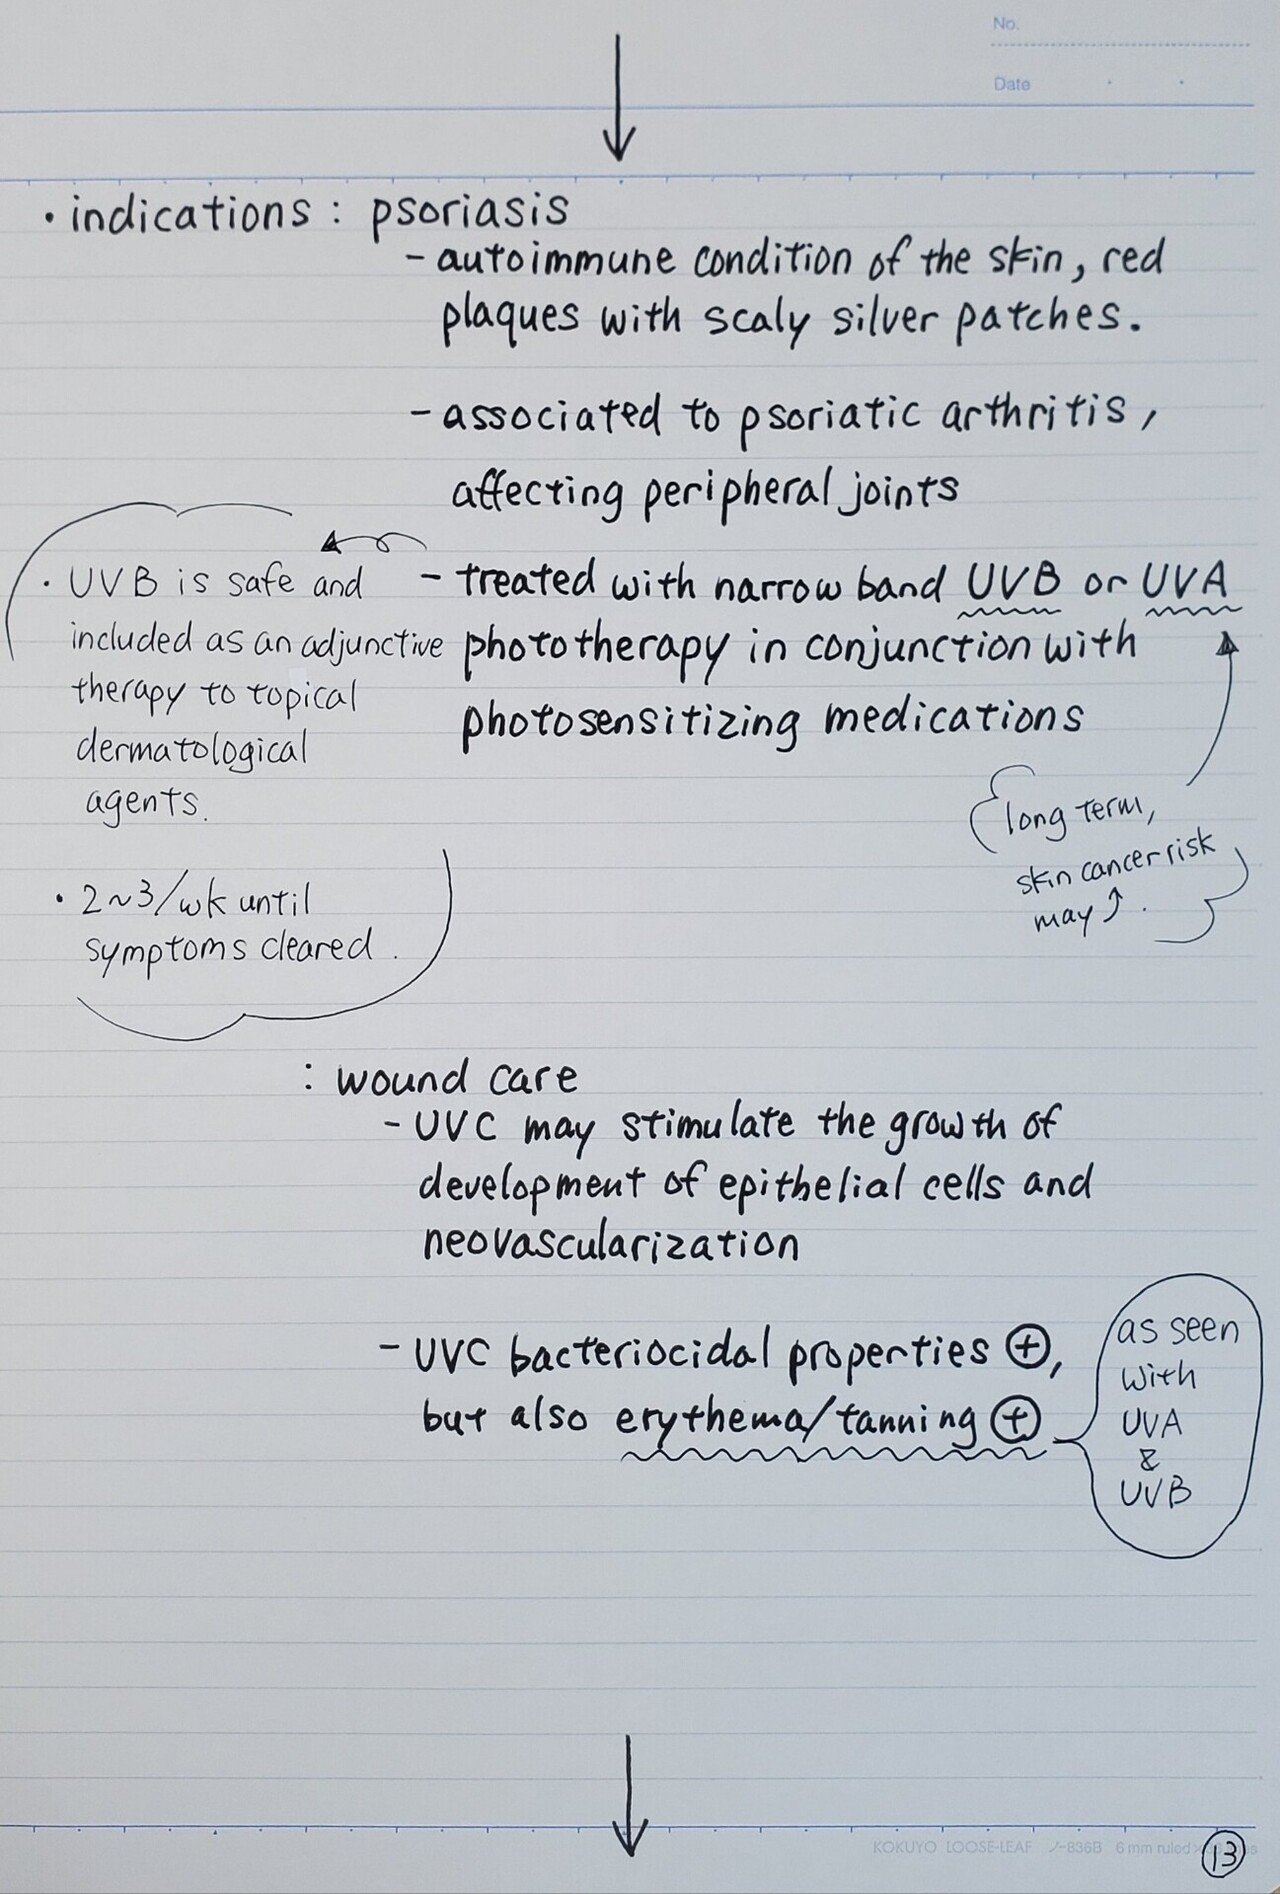 No.
Date
↓
• indications : psoriasis
- autoimmune condition of the skin, red
plaques with scaly silver patches.
- associated to psoriatic arthritis,
affecting peripheral joints
- treated with narrow band UVB or UVA
phototherapy in conjunction with
photosensitizing medications
• UVB is safe and
included as an adjunctive
therapy to topical
dermatological
agents.
• 2~3/wk until
symptoms cleared.
long term,
skin cancer risk
may ↑.
: wound care
- UVC may stimulate the growth of
development of epithelial cells and
neovascularization
- UVC bacteriocidal properties ⊕,
but also erythema/tanning ⊕
as seen
with
UVA
&
UVB
↓
KOKUYO LOOSE-LEAF ノ-836B 6 mm ruled
13